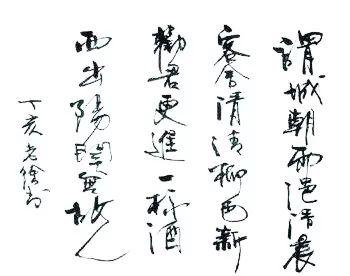 渭城朝雨浥清晨
客舍清清柳色新
勸君更進一杯酒
西出陽關無故人
丁亥老徐书